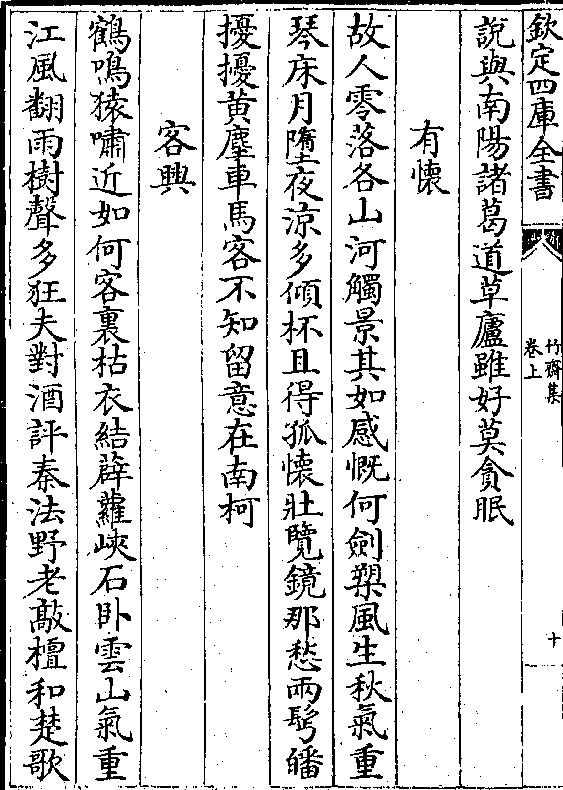 欽定四庫全書
竹齋集
卷上
十
說與南陽諸葛道草廬雖好莫貪眠
有懷
故人零落各山河觸景其如感慨何劍槊風生秋氣重
琴床月墮夜涼多傾杯且得孤懷壯覽鏡那愁兩鬢皤
擾擾黃塵車馬客不知留意在南柯
客興
鶴鳴猿嘯近如何客裏枯衣結薜蘿峽石卧雲山氣重
江風翻雨樹聲多狂夫對酒評秦法野老敲檀和楚歌